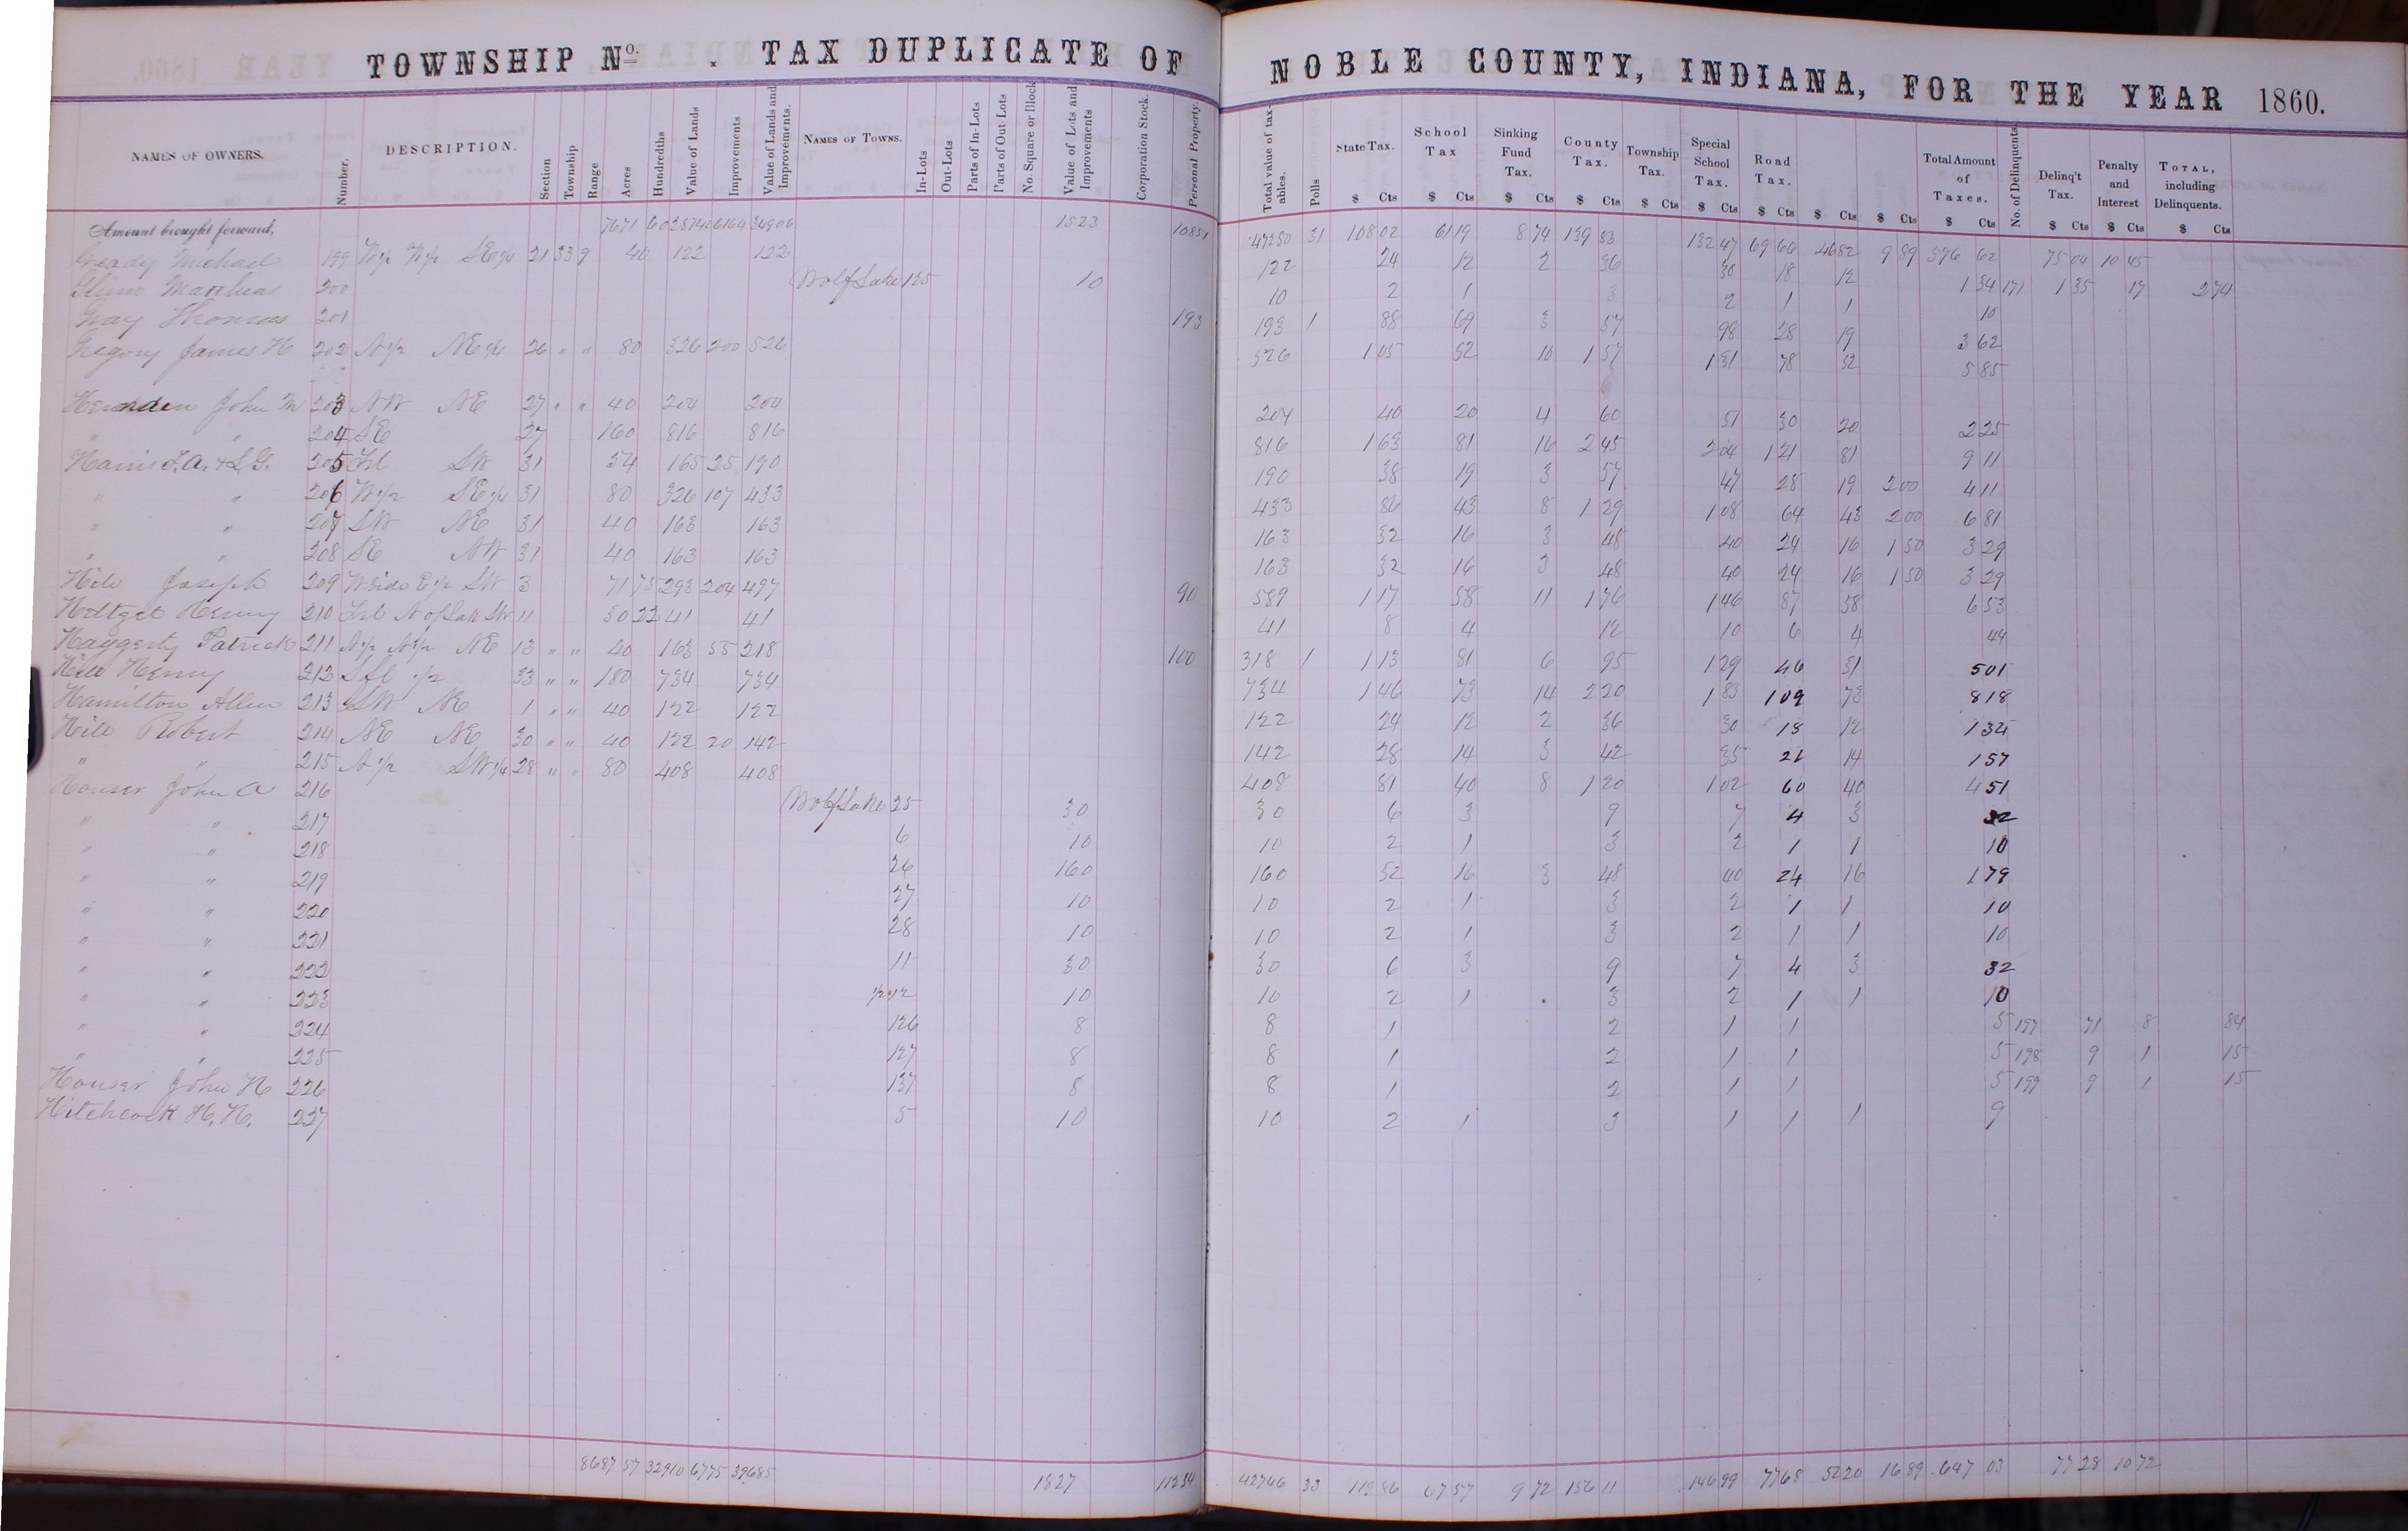 TOWNSHIP No. . TAX DUPLICATE OF NOBLE COUNTY, INDIANA, FOR THE YEAR 1860.
NAMES OF OWNERS. Number. DESCRIPTION. Section Township Range Acres Hundredths Value of Lands Improvements Value of Lands and Improvements. NAMES OF TOWNS. In-Lots Out-Lots Parts of In-Lots Parts of Out Lots No. Square or Block Value of Lots and Improvements Corporation Stock. Personal Property. Total value of taxables. Polls State Tax. School Tax Sinking Fund Tax. County Tax. Township Tax. Special School Tax. Road Tax. Total Amount of Taxes. No. of Delinquents. Delinq't Tax. Penalty and Interest TOTAL, including Delinquents.
$ Cts $ Cts $ Cts $ Cts $ Cts $ Cts $ Cts $ Cts $ Cts $ Cts $ Cts $ Cts $ Cts
Amount brought forward, 7671 60 28742 6164 34906 1523 10851 47280 31 108 02 61 19 8 74 139 83 132 47 69 66 46 82 9 89 576 62 75 04 10 45
Gready Michael 199 W½ W½ SE¼ 21 33 9 40 122 122 122 24 12 2 36 30 18 12 1 34 171 1 35 17 2 74
Matthias 200 Wolf Lake 125 10 10 2 1 3 2 1 1 10
Gray Thomas 201 193 193 1 88 69 3 57 98 28 19 3 62
Gregory James H 202 N½ NE¼ 26 " " 80 326 200 526 526 1 05 52 10 1 57 1 31 78 52 5 85
John M 203 NW NE 27 " " 40 204 204 204 40 20 4 60 51 30 20 2 25
" " 204 SE 27 160 816 816 816 1 63 81 16 2 45 2 04 1 21 81 9 11
Harris J.A. & L.G. 205 Frl SW 31 54 165 25 190 190 38 19 3 57 47 28 19 2 00 4 11
" " 206 W½ SE¼ 31 80 326 107 433 433 86 43 8 1 29 1 08 64 43 2 00 6 81
" " 207 SW NE 31 40 163 163 163 32 16 3 48 40 24 16 1 50 3 29
" " 208 SE NW 31 40 163 163 163 32 16 3 48 40 24 16 1 50 3 29
Hile Joseph 209 W side E½ SW 3 71 75 293 204 497 90 589 1 17 58 11 1 76 1 46 87 58 6 53
Henry 210 Frl N of Lake SW 11 30 22 41 41 41 8 4 12 10 6 4 44
Haggerty Patrick 211 N½ N½ NE 13 " " 40 163 55 218 100 318 1 1 13 81 6 95 1 29 46 31 5 01
Hile Henry 212 S fl ½ 33 " " 180 734 734 734 1 46 73 14 2 20 1 83 1 09 73 8 18
Hamilton Allen 213 SW NE 1 " " 40 122 122 122 24 12 2 36 30 18 12 1 34
Hile Robert 214 NE NE 30 " " 40 122 20 142 142 28 14 3 42 35 21 14 1 57
" " 215 N½ SW¼ 28 " " 80 408 408 408 81 40 8 1 20 1 02 60 40 4 51
Houser John A 216 Wolf Lake 25 30 30 6 3 9 7 4 3 32
" " 217 6 10 10 2 1 3 2 1 1 10
" " 218 26 160 160 32 16 3 48 40 24 16 1 79
" " 219 27 10 10 2 1 3 2 1 1 10
" " 220 28 10 10 2 1 3 2 1 1 10
" " 221 11 30 30 6 3 9 7 4 3 32
" " 222 ½ 12 10 10 2 1 3 2 1 1 10
" " 223 126 8 8 1 2 1 1 5 197 71 8 84
" " 224 127 8 8 1 2 1 1 5 198 9 1 15
" " 225 137 8 8 1 2 1 1 5 199 9 1 15
Houser John H 226 5 10 10 2 1 3 1 1 1 9
Hitchcock H. N. 227
8687 57 32910 6775 39685 1827 11234 42766 33 119 86 67 57 9 72 156 11 146 99 77 68 52 20 16 89 647 03 77 28 10 72